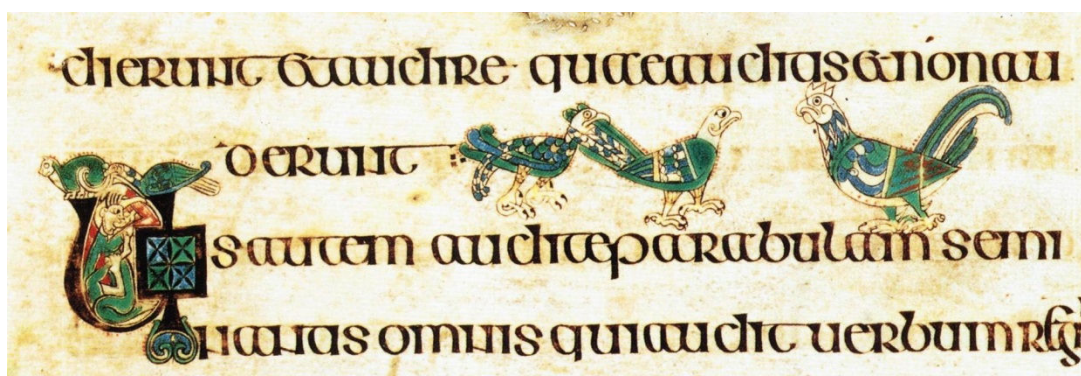 dierunt & audire quae auditis & non au
derunt
Uos autem audite parabulam semi
nantis omnis qui audit uerbum regni